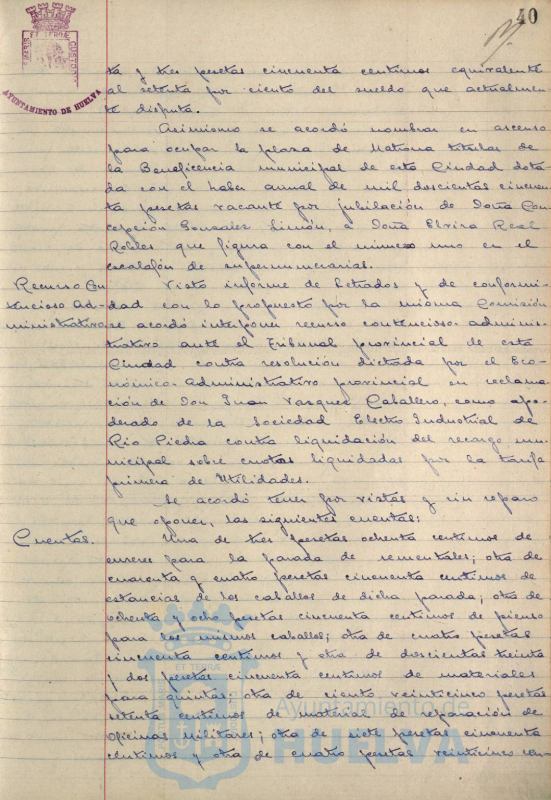 40
AYUNTAMIENTO DE HUELVA
ta y tres pesetas cincuenta centimos equivalente
al setenta por ciento del sueldo que actualmen-
te disputa.
Asimismo se acordó nombrar en ascenso
para ocupar la plaza de Matrona titular de
la Beneficencia municipal de esta Ciudad dota-
da con el haber anual de mil doscientas cincuen-
ta pesetas vacante por jubilación de Doña Con-
cepción Gonzalez Limón, a Doña Elvira Real
Robles que figura con el número uno en el
escalafón de supernumerarias.
Recurso Con-
tencioso Ad-
ministrativo
Visto informe de Letrados y de conformi-
dad con lo propuesto por la misma Comisión
se acordó interponer recurso contencioso-adminis-
trativo ante el Tribunal provincial de esta
Ciudad contra resolución dictada por el Eco-
nómico-Administrativo provincial en reclama-
ción de Don Juan Vasquez Caballero, como apo-
derado de la Sociedad Electro Industrial de
Rio Piedra contra liquidación del recargo mu-
nicipal sobre cuotas liquidadas por la tarifa
primera de Utilidades.
Se acordó tener por vistas y sin reparo
que oponer, las siguientes cuentas:
Cuentas.
Una de tres pesetas ochenta centimos de
enseres para la parada de sementales; otra de
cuarenta y cuatro pesetas cincuenta centimos de
estancias de los caballos de dicha parada; otra de
ochenta y ocho pesetas cincuenta centimos de pienso
para los mismos caballos; otra de cuatro pesetas
cincuenta centimos y otra de doscientas treinta
y dos pesetas cincuenta centimos de materiales
para quintas; otra de ciento veinticinco pesetas
setenta centimos de material de reparación de
Oficinas Militares; otra de siete pesetas cincuenta
centimos y otra de cuatro pesetas veinticinco cen-
Ayuntamiento de
HUELVA